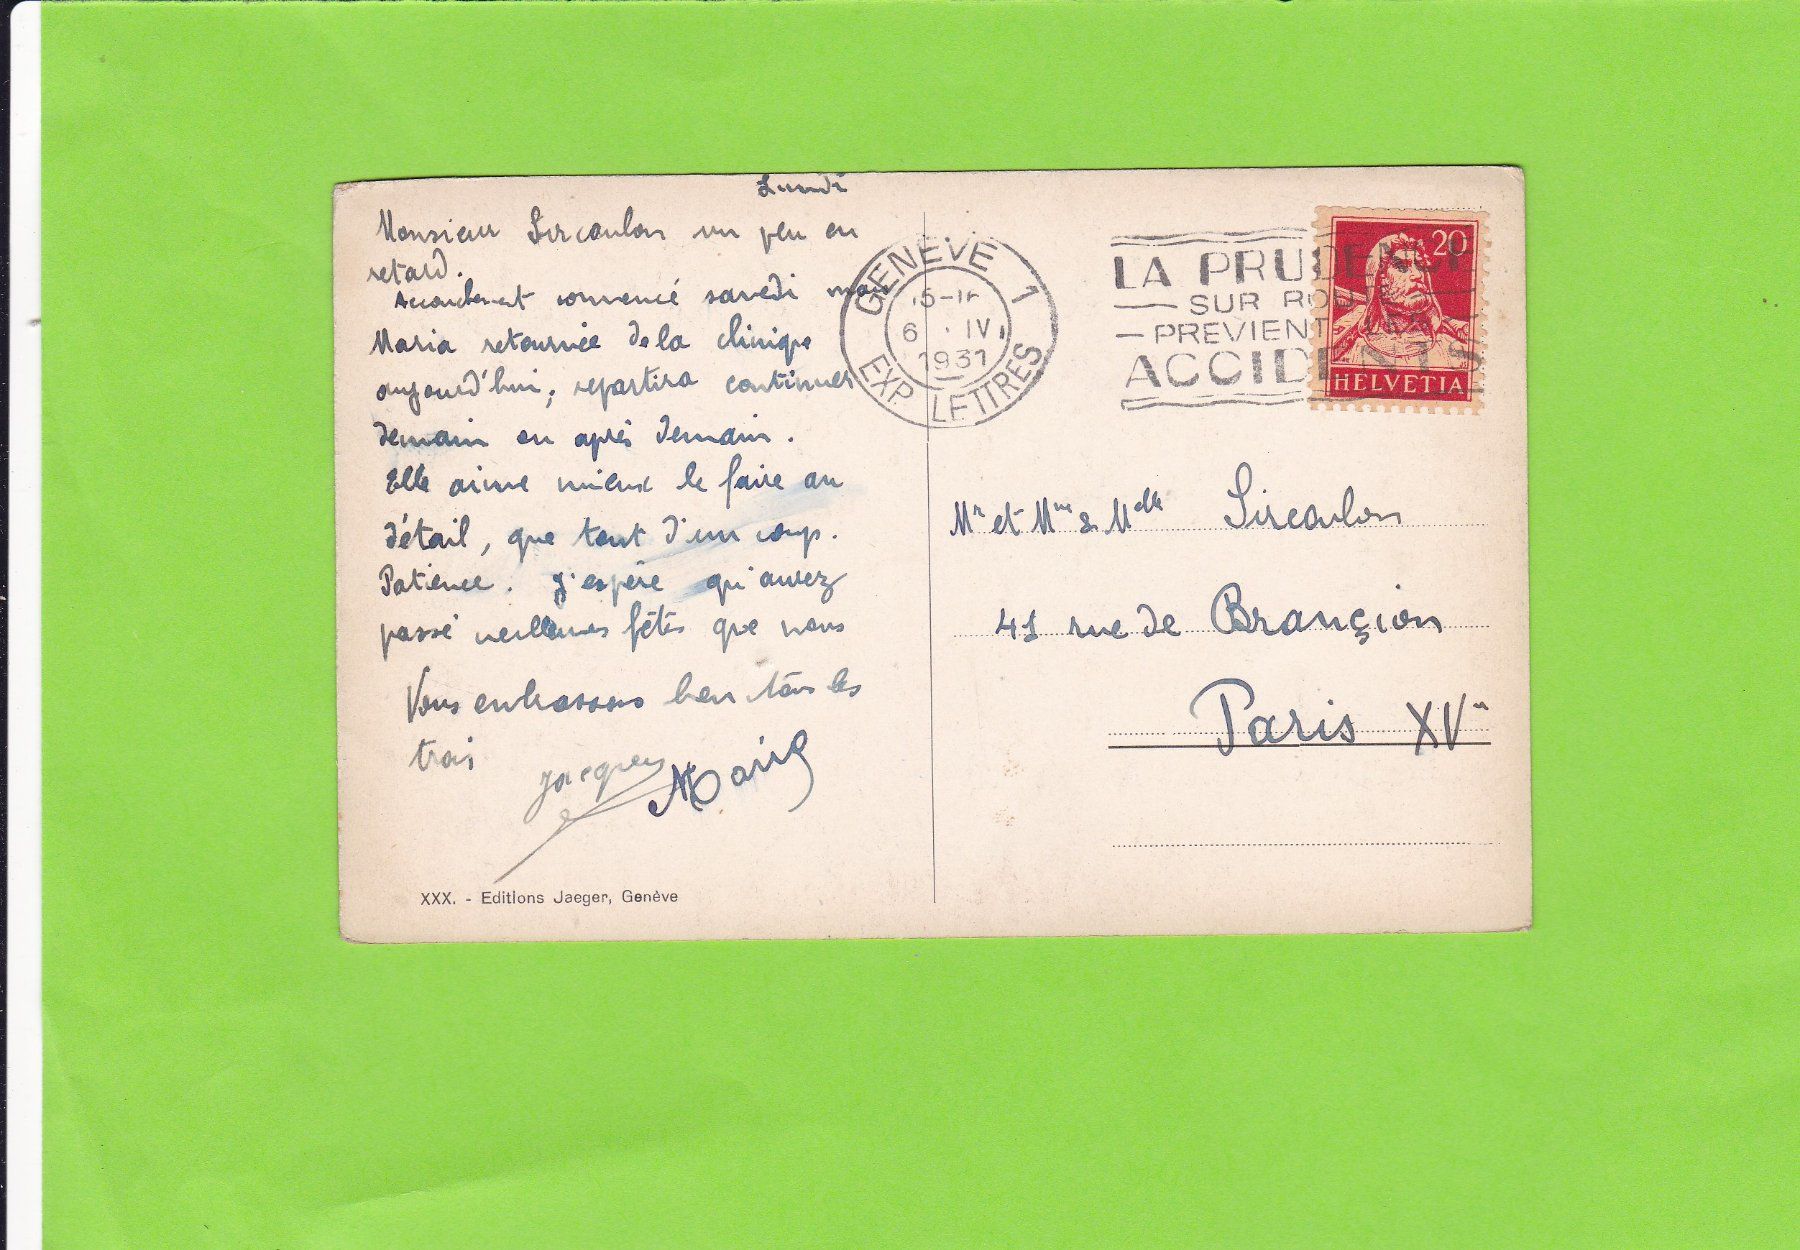 Lundi
Monsieur Sircoulon un peu en
retard.
Accouchement commencé samedi mais
Maria retournée de la clinique
aujourd'hui, repartira continuer
demain ou après demain.
Elle aime mieux le faire au
détail, que tout d'un coup.
Patience. J'espère qu'aurez
passé meilleures fêtes que nous
Vous embrassons bien tous les
trois
Jacques Maria
XXX. - Editions Jaeger, Genève
GENÈVE 1
6. IV.
1931
EXP. LETTRES
LA PRUDENCE
SUR ROUTE
PREVIENT LES
ACCIDENTS
20
HELVETIA
Mr et Mme & Melle Sircoulon
41 rue de Brançion
Paris XVe